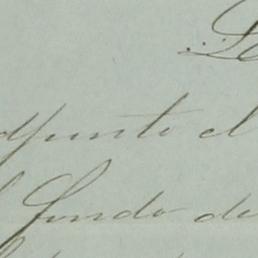 adjunto el
fondo de